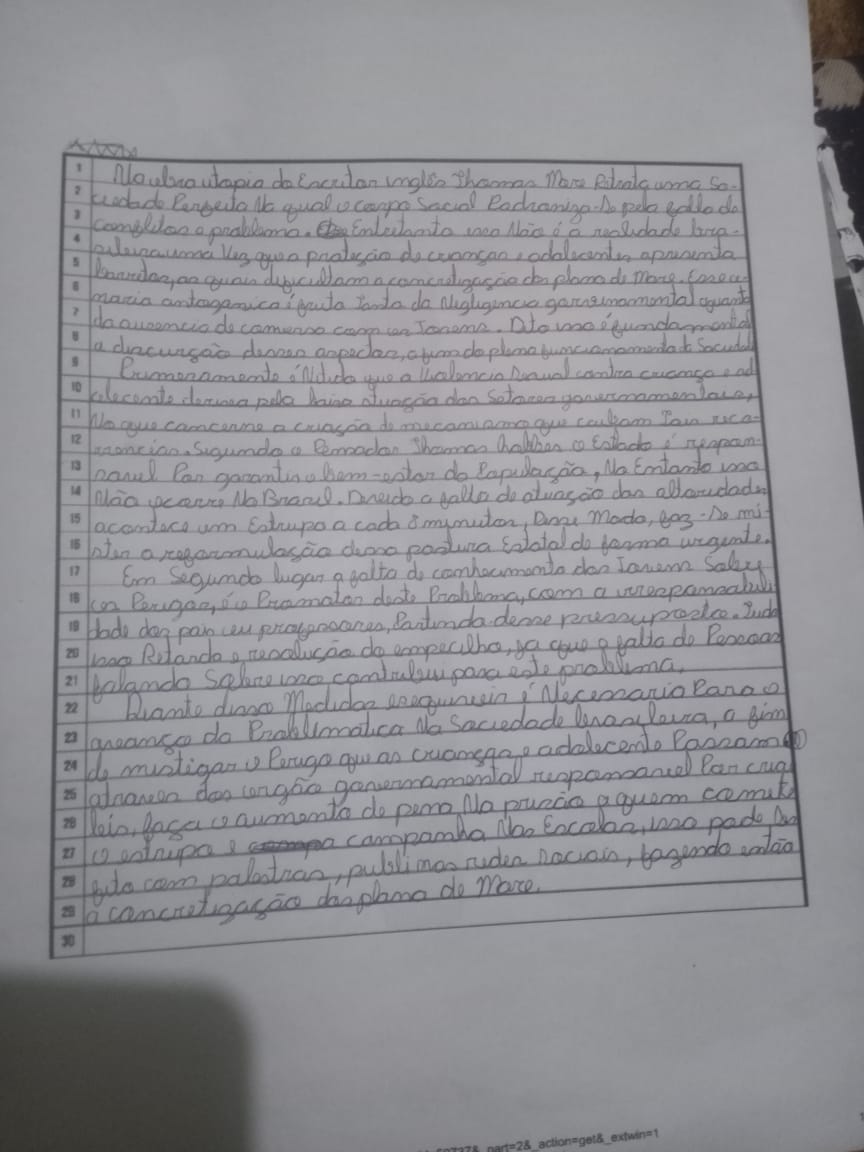 Na obra utopia do Escritor inglês Thomas More Retrata uma So-
ciedade Perfeita Na qual o corpo Social Padroniza-se pela falta de
conflitos e problema. Entretanto isso Não é a realidade bra-
sileira uma Vez que a proteção de crianças e adolecentes apresenta
barreiras, as quais dificultam a concretização dos plano de More. Esse ce-
nario antagonico é fruto tanto da Negligencia governamental quanto
da ausencia de conversa com os Jovens. Dito isso é fundamental
a discursão desses aspectos, a fim do pleno funcionamento da Sociedade
Primeiramente é Nitido que a Violencia Sexual contra criança e ad
olecente deriva pela baixa atuação dos Setores governamentais,
No que concerne a criação de mecanismo que coibam Tais reco-
rrencias. Segundo o Pensador Thomas hobbes o Estado é respon-
savel Por garantir o bem-estar da População, No Entanto isso
Não ocorre No Brasil. Devido a falta de atuação das altoridades
acontece um Estrupo a cada 8 mynutos, Desse Modo, faz-se mi-
ster a reformulação dessa postura Estatal de forma urgente.
Em Segundo lugar a falta de conhecimento dos Jovens Sobre
os Perigos, é o Promotor deste Problema, com a irresponsabili
dade dos pais e professores, Partindo desse pressuposto. Tudo
isso Retarda a resolução do empecilho, ja que a falta de Pessoas
falando Sobre isso contribui para este problema.
Diante disso Medidas exequiveis é Necessario Para o
avanço da Problematica Na Sociedade brasileira, a fim
de mistigar o Perigo que as crianças e adolecente Passam
atraves dos orgão governamental responsavel Por criar
leis, faça o aumento de pena Na prizão a quem comete
o estrupo e campanha Nas Escolas, isso pode Ser
feito com palestras, publi nas redes sociais, fazendo então
a concretização dos plano de More.
part=2&_action=get&_extwin=1